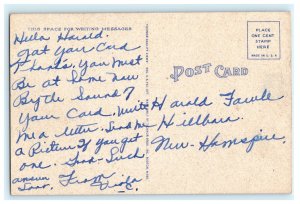 THIS SPACE FOR WRITING MESSAGES
PLACE
ONE CENT
STAMP
HERE
MADE IN U.S.A.
POST CARD
Hello Harold.
Got your Card
Thanks. You must
Be at home now
By the Sound of
Your Card. Write
me a letter. Send me
a Picture if you get
one. Good-Luck
From
Harold Fowle
Hillboro.
New-Hampsire.